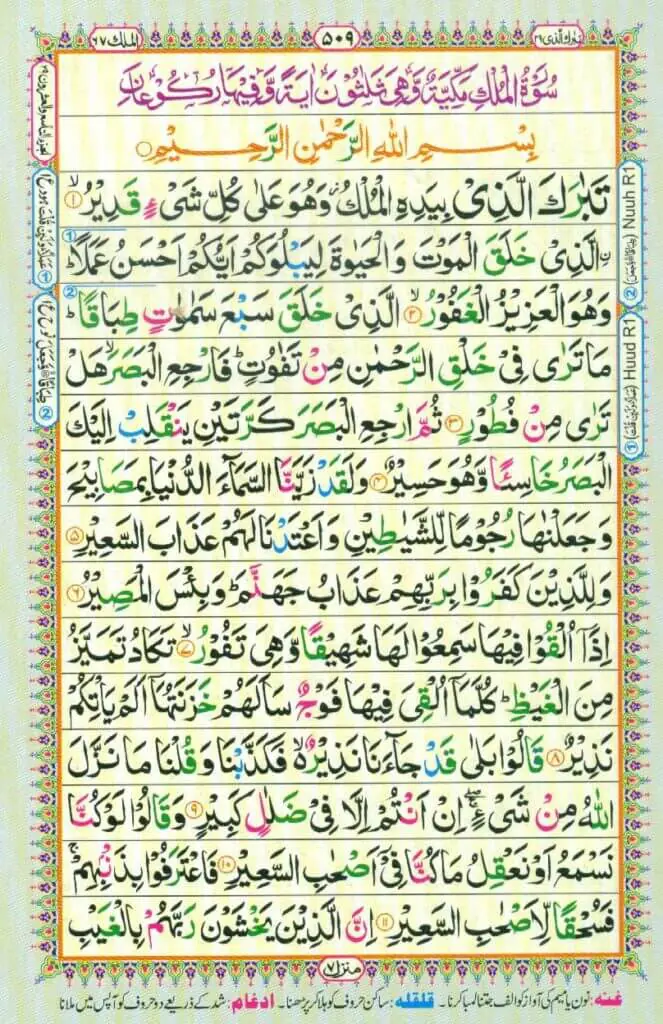 تبٰرك الذی ۲۹
۵۰۹
الملك ۶۷
سُوْرَةُ الْمُلْكِ مَكِّيَّةٌ وَّهِیَ ثَلٰثُوْنَ اٰيَةً وَّفِيْهَا رُكُوْعَانِ
بِسْمِ اللّٰهِ الرَّحْمٰنِ الرَّحِيْمِ
تَبٰرَكَ الَّذِیْ بِيَدِهِ الْمُلْكُ ز وَهُوَ عَلٰی كُلِّ شَیْءٍ قَدِيْرُ ۙ۝۱
نِ الَّذِیْ خَلَقَ الْمَوْتَ وَالْحَيٰوةَ لِيَبْلُوَكُمْ اَيُّكُمْ اَحْسَنُ عَمَلًا ؕ
وَهُوَ الْعَزِيْزُ الْغَفُوْرُ ۙ۝۲ الَّذِیْ خَلَقَ سَبْعَ سَمٰوٰتٍ طِبَاقًا ؕ
مَا تَرٰی فِیْ خَلْقِ الرَّحْمٰنِ مِنْ تَفٰوُتٍ ؕ فَارْجِعِ الْبَصَرَ ۙ هَلْ
تَرٰی مِنْ فُطُوْرٍ ۝۳ ثُمَّ ارْجِعِ الْبَصَرَ كَرَّتَيْنِ يَنْقَلِبْ اِلَيْكَ
الْبَصَرُ خَاسِئًا وَّهُوَ حَسِيْرٌ ۝۴ وَلَقَدْ زَيَّنَّا السَّمَآءَ الدُّنْيَا بِمَصَابِيْحَ
وَجَعَلْنٰهَا رُجُوْمًا لِّلشَّيٰطِيْنِ وَاَعْتَدْنَا لَهُمْ عَذَابَ السَّعِيْرِ ۝۵
وَلِلَّذِيْنَ كَفَرُوْا بِرَبِّهِمْ عَذَابُ جَهَنَّمَ ؕ وَبِئْسَ الْمَصِيْرُ ۝۶
اِذَاۤ اُلْقُوْا فِيْهَا سَمِعُوْا لَهَا شَهِيْقًا وَّهِیَ تَفُوْرُ ۙ۝۷ تَكَادُ تَمَيَّزُ
مِنَ الْغَيْظِ ؕ كُلَّمَاۤ اُلْقِیَ فِيْهَا فَوْجٌ سَاَلَهُمْ خَزَنَتُهَاۤ اَلَمْ يَاْتِكُمْ
نَذِيْرٌ ۝۸ قَالُوْا بَلٰی قَدْ جَآءَنَا نَذِيْرٌ ۙ۬ فَكَذَّبْنَا وَقُلْنَا مَا نَزَّلَ
اللّٰهُ مِنْ شَیْءٍ ۖۚ اِنْ اَنْتُمْ اِلَّا فِیْ ضَلٰلٍ كَبِيْرٍ ۝۹ وَقَالُوْا لَوْ كُنَّا
نَسْمَعُ اَوْ نَعْقِلُ مَا كُنَّا فِیْۤ اَصْحٰبِ السَّعِيْرِ ۝۱۰ فَاعْتَرَفُوْا بِذَنْۢبِهِمْ ۚ
فَسُحْقًا لِّاَصْحٰبِ السَّعِيْرِ ۝۱۱ اِنَّ الَّذِيْنَ يَخْشَوْنَ رَبَّهُمْ بِالْغَيْبِ
② Nuuh R1
① Huud R1
①
②
منزل۷
غنه: نون یا میم کی آواز کو الف جتنا لمبا کرنا۔ قلقله: ساکن حروف کو ہلا کر پڑھنا۔ ادغام: شد کے ذریعے دو حروف کو آپس میں ملانا